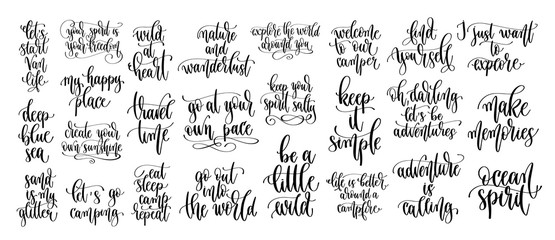 let's
start
van
life
your spirit is
your freedom
wild
at
heart
nature
and
wanderlust
explore the world
around you
welcome
to our
camper
find
yourself
I just want
to
explore
deep
blue
sea
my happy
place
create your
own sunshine
travel
time
go at your
own pace
keep your
spirit salty
keep
it
simple
oh, darling
let's be
adventures
make
memories
sand
is my
glitter
let's go
camping
eat
sleep
camp
repeat
go out
into
the world
be a
little
wild
life is better
around a
campfire
adventure
is
calling
ocean
spirit